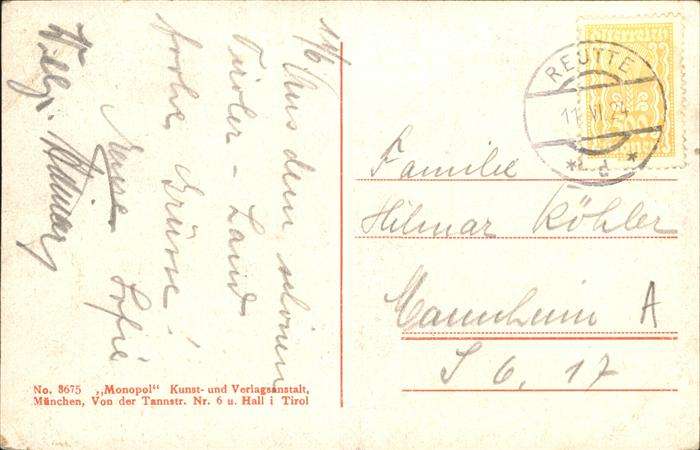 11/6
Aus dem schönen
Tiroler - Land
frohe Grüsse!
Sofie
Österreich
REUTTE
11. VI. 24
* d *
Familie
Hilmar Köhler
Mannheim A
S 6, 17
No. 8675 „Monopol" Kunst- und Verlagsanstalt,
München, Von der Tannstr. Nr. 6 u. Hall i Tirol